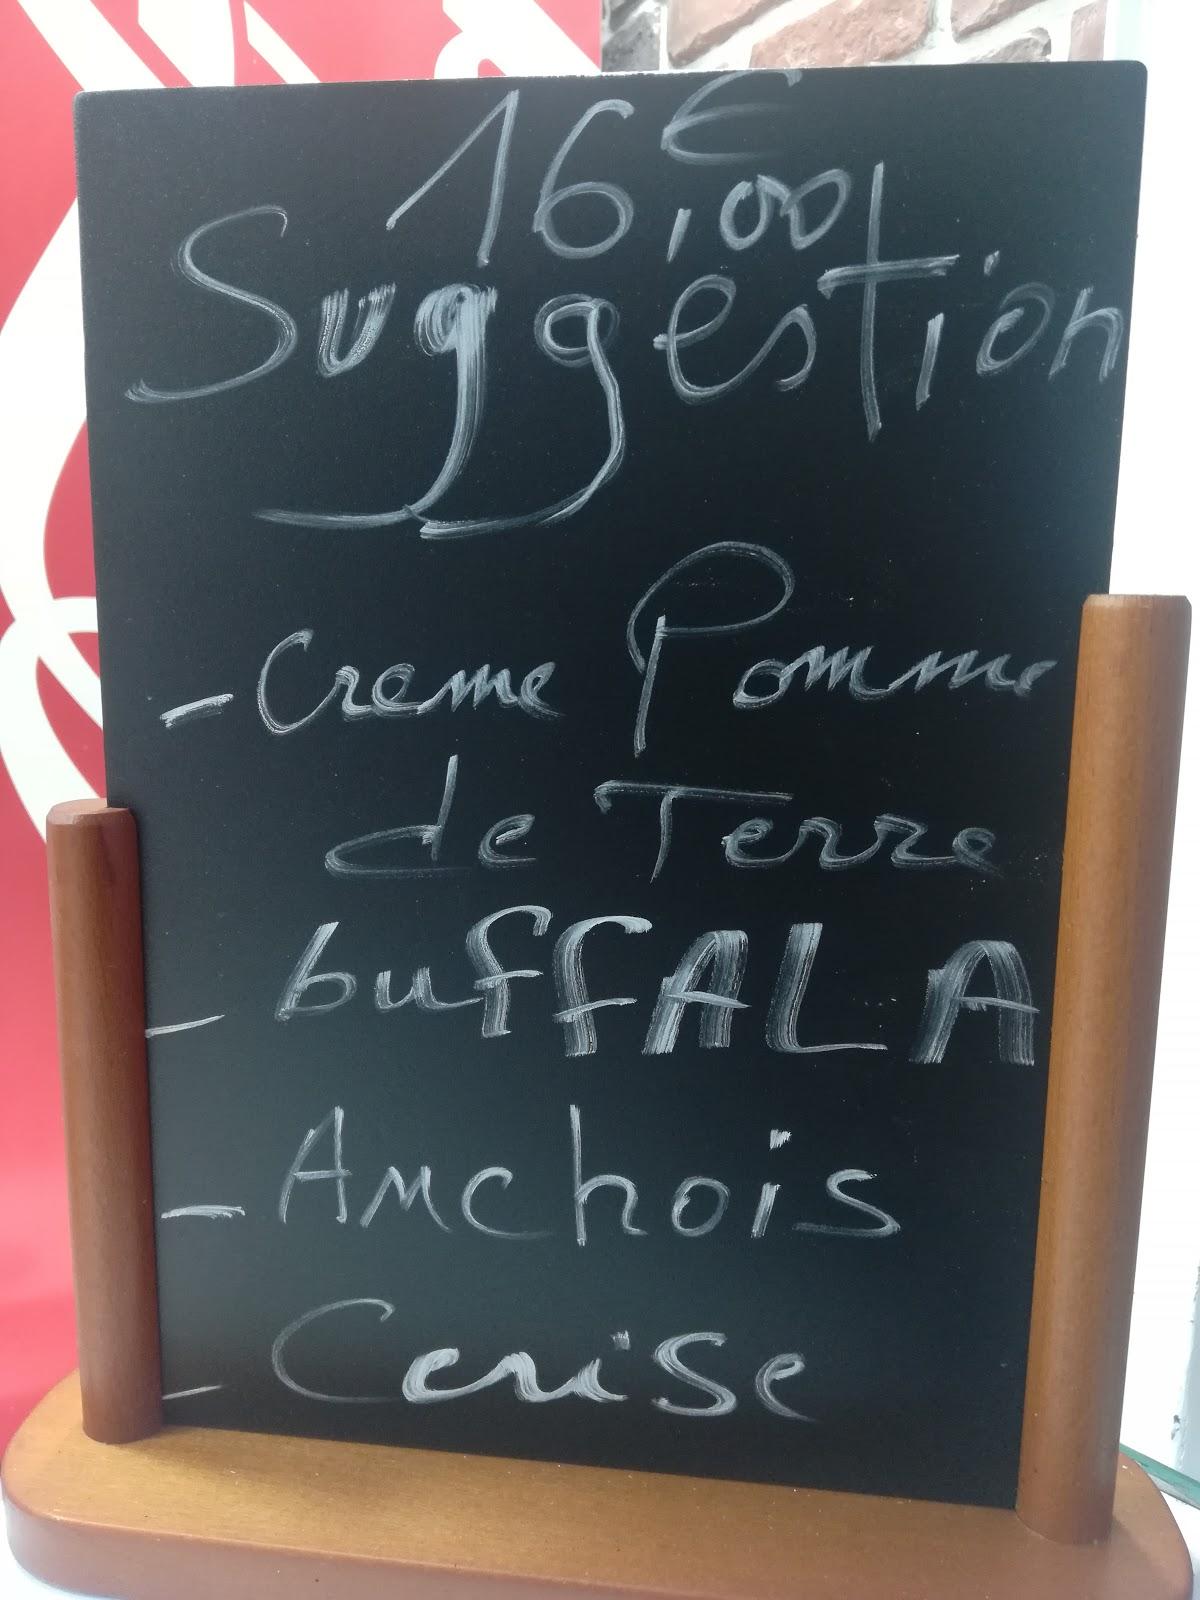 16,00€
Suggestion
- Creme Pomme
de Terre
- buffALA
- Anchois
- Cerise